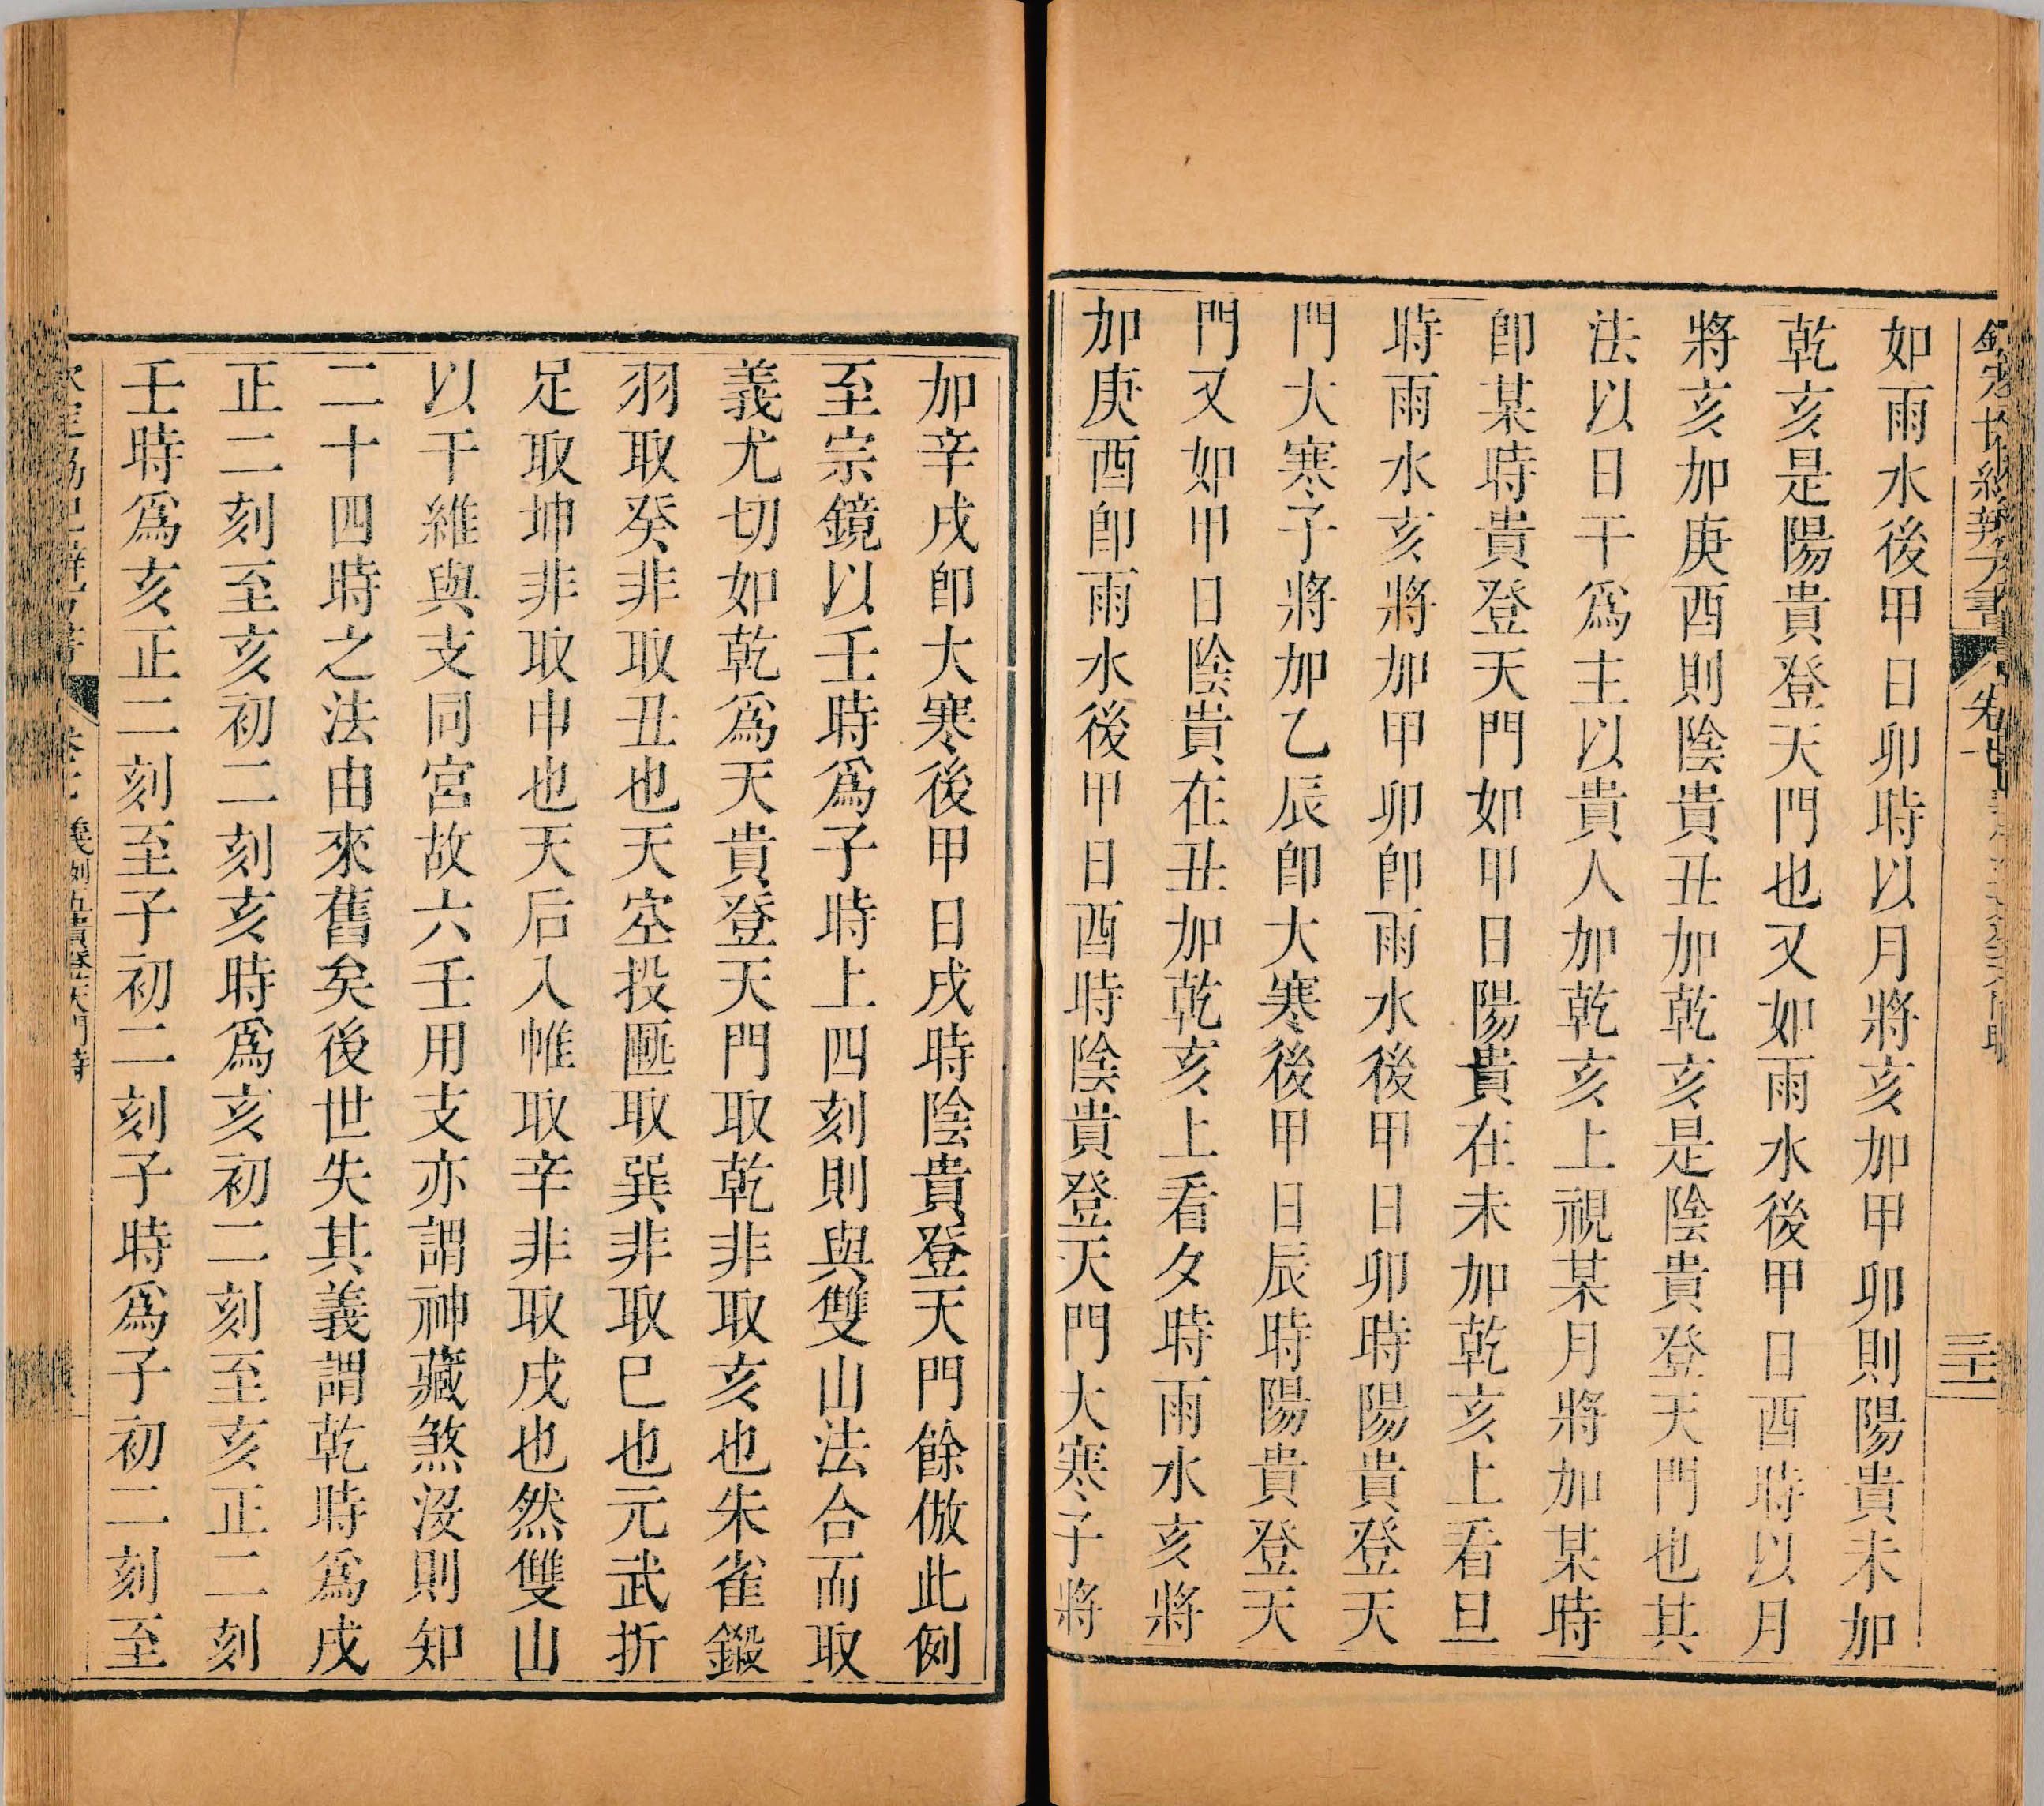 如雨水後甲日卯時以月將亥加甲卯則陽貴未加
乾亥是陽貴登天門也又如雨水後甲日酉時以月
將亥加庚酉則陰貴丑加乾亥是陰貴登天門也其
法以日干爲主以貴人加乾亥上視某月將加某時
卽某時貴登天門如甲日陽貴在未加乾亥上看旦
時雨水亥將加甲卯卽雨水後甲日卯時陽貴登天
門大寒子將加乙辰卽大寒後甲日辰時陽貴登天
門又如甲日陰貴在丑加乾亥上看夕時雨水亥將
加庚酉卽雨水後甲日酉時陰貴登天門大寒子將
加辛戌卽大寒後甲日戌時陰貴登天門餘倣此例
至宗鏡以壬時爲子時上四刻則與雙山法合而取
義尤切如乾爲天貴登天門取乾非取亥也朱雀鍛
羽取癸非取丑也天空投匭取巽非取巳也元武折
足取坤非取申也天后入帷取辛非取戌也然雙山
以干維與支同宮故六壬用支亦謂神藏煞沒則知
二十四時之法由來舊矣後世失其義謂乾時爲戌
正二刻至亥初二刻亥時爲亥初二刻至亥正二刻
壬時爲亥正二刻至子初二刻子時爲子初二刻至